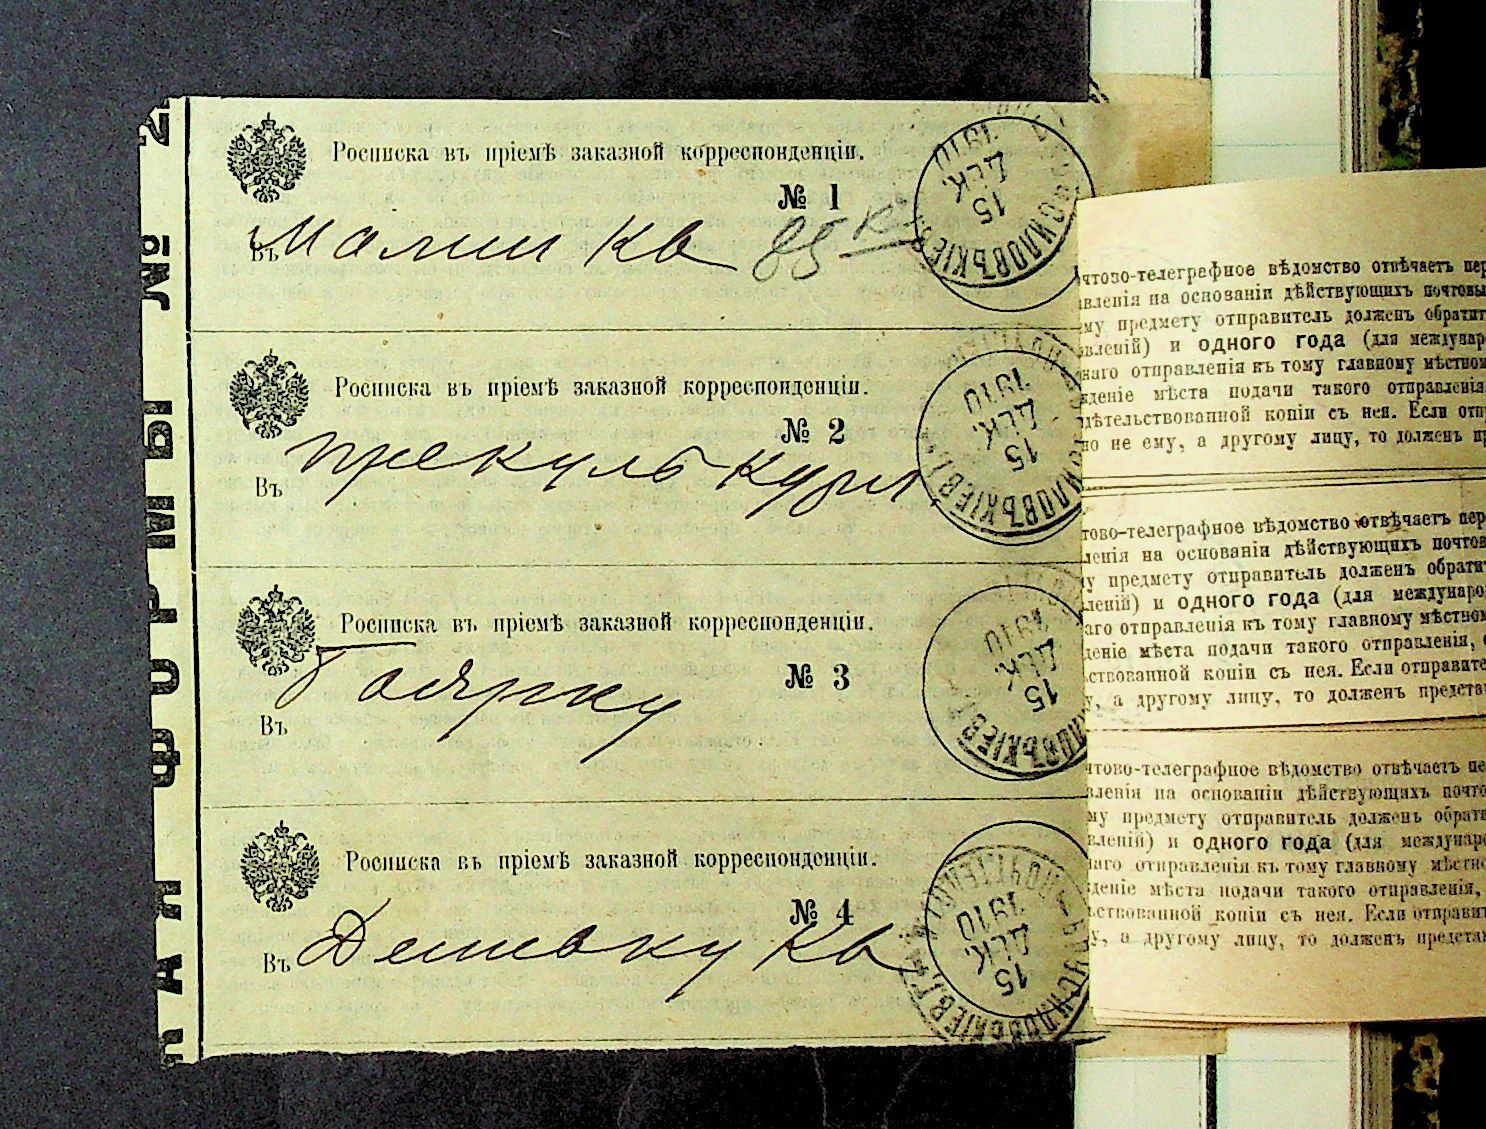 Росписка въ пріемѣ заказной корреспонденціи.
№ 1
Въ Малин Кв 85 к
Росписка въ пріемѣ заказной корреспонденціи.
№ 2
Въ Прекульъ Курл.
Росписка въ пріемѣ заказной корреспонденціи.
№ 3
Въ Боярку
Росписка въ пріемѣ заказной корреспонденціи.
№ 4
Въ Дешевку Кв
15 ДЕК. 1910
15 ДЕК. 1910
15 ДЕК. 1910
15 ДЕК. 1910
ФОРМЫ № 2
чтово-телеграфное вѣдомство отвѣчаетъ пер
вленія на основаніи дѣйствующихъ почтовы
му предмету отправитель долженъ обратит
вленій) и одного года (для междунар
наго отправленія къ тому главному мѣстном
ждніе мѣста подачи такого отправленія
дѣтельствованной копіи съ нея. Если отп
но не ему, а другому лицу, то долженъ п
тово-телеграфное вѣдомство отвѣчаетъ пер
ленія на основаніи дѣйствующихъ почтов
у предмету отправитель долженъ обрати
леній) и одного года (для междунаро
аго отправленія къ тому главному мѣстном
деніе мѣста подачи такого отправленія,
ствованной копіи съ нея. Если отправите
у, а другому лицу, то долженъ предста
чтово-телеграфное вѣдомство отвѣчаетъ пе
вленія на основаніи дѣйствующихъ почто
му предмету отправитель долженъ обрати
вленій) и одного года (для междунаро
наго отправленія къ тому главному мѣстно
деніе мѣста подачи такого отправленія,
ствованной копіи съ нея. Если отправи
у, а другому лицу, то долженъ предста